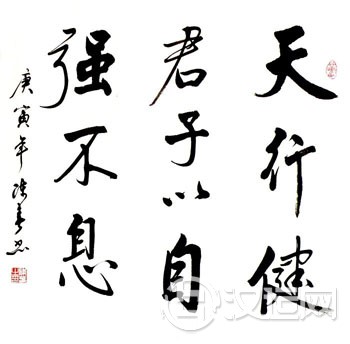 天行健
君子以自
强不息
庚寅年
汉程网